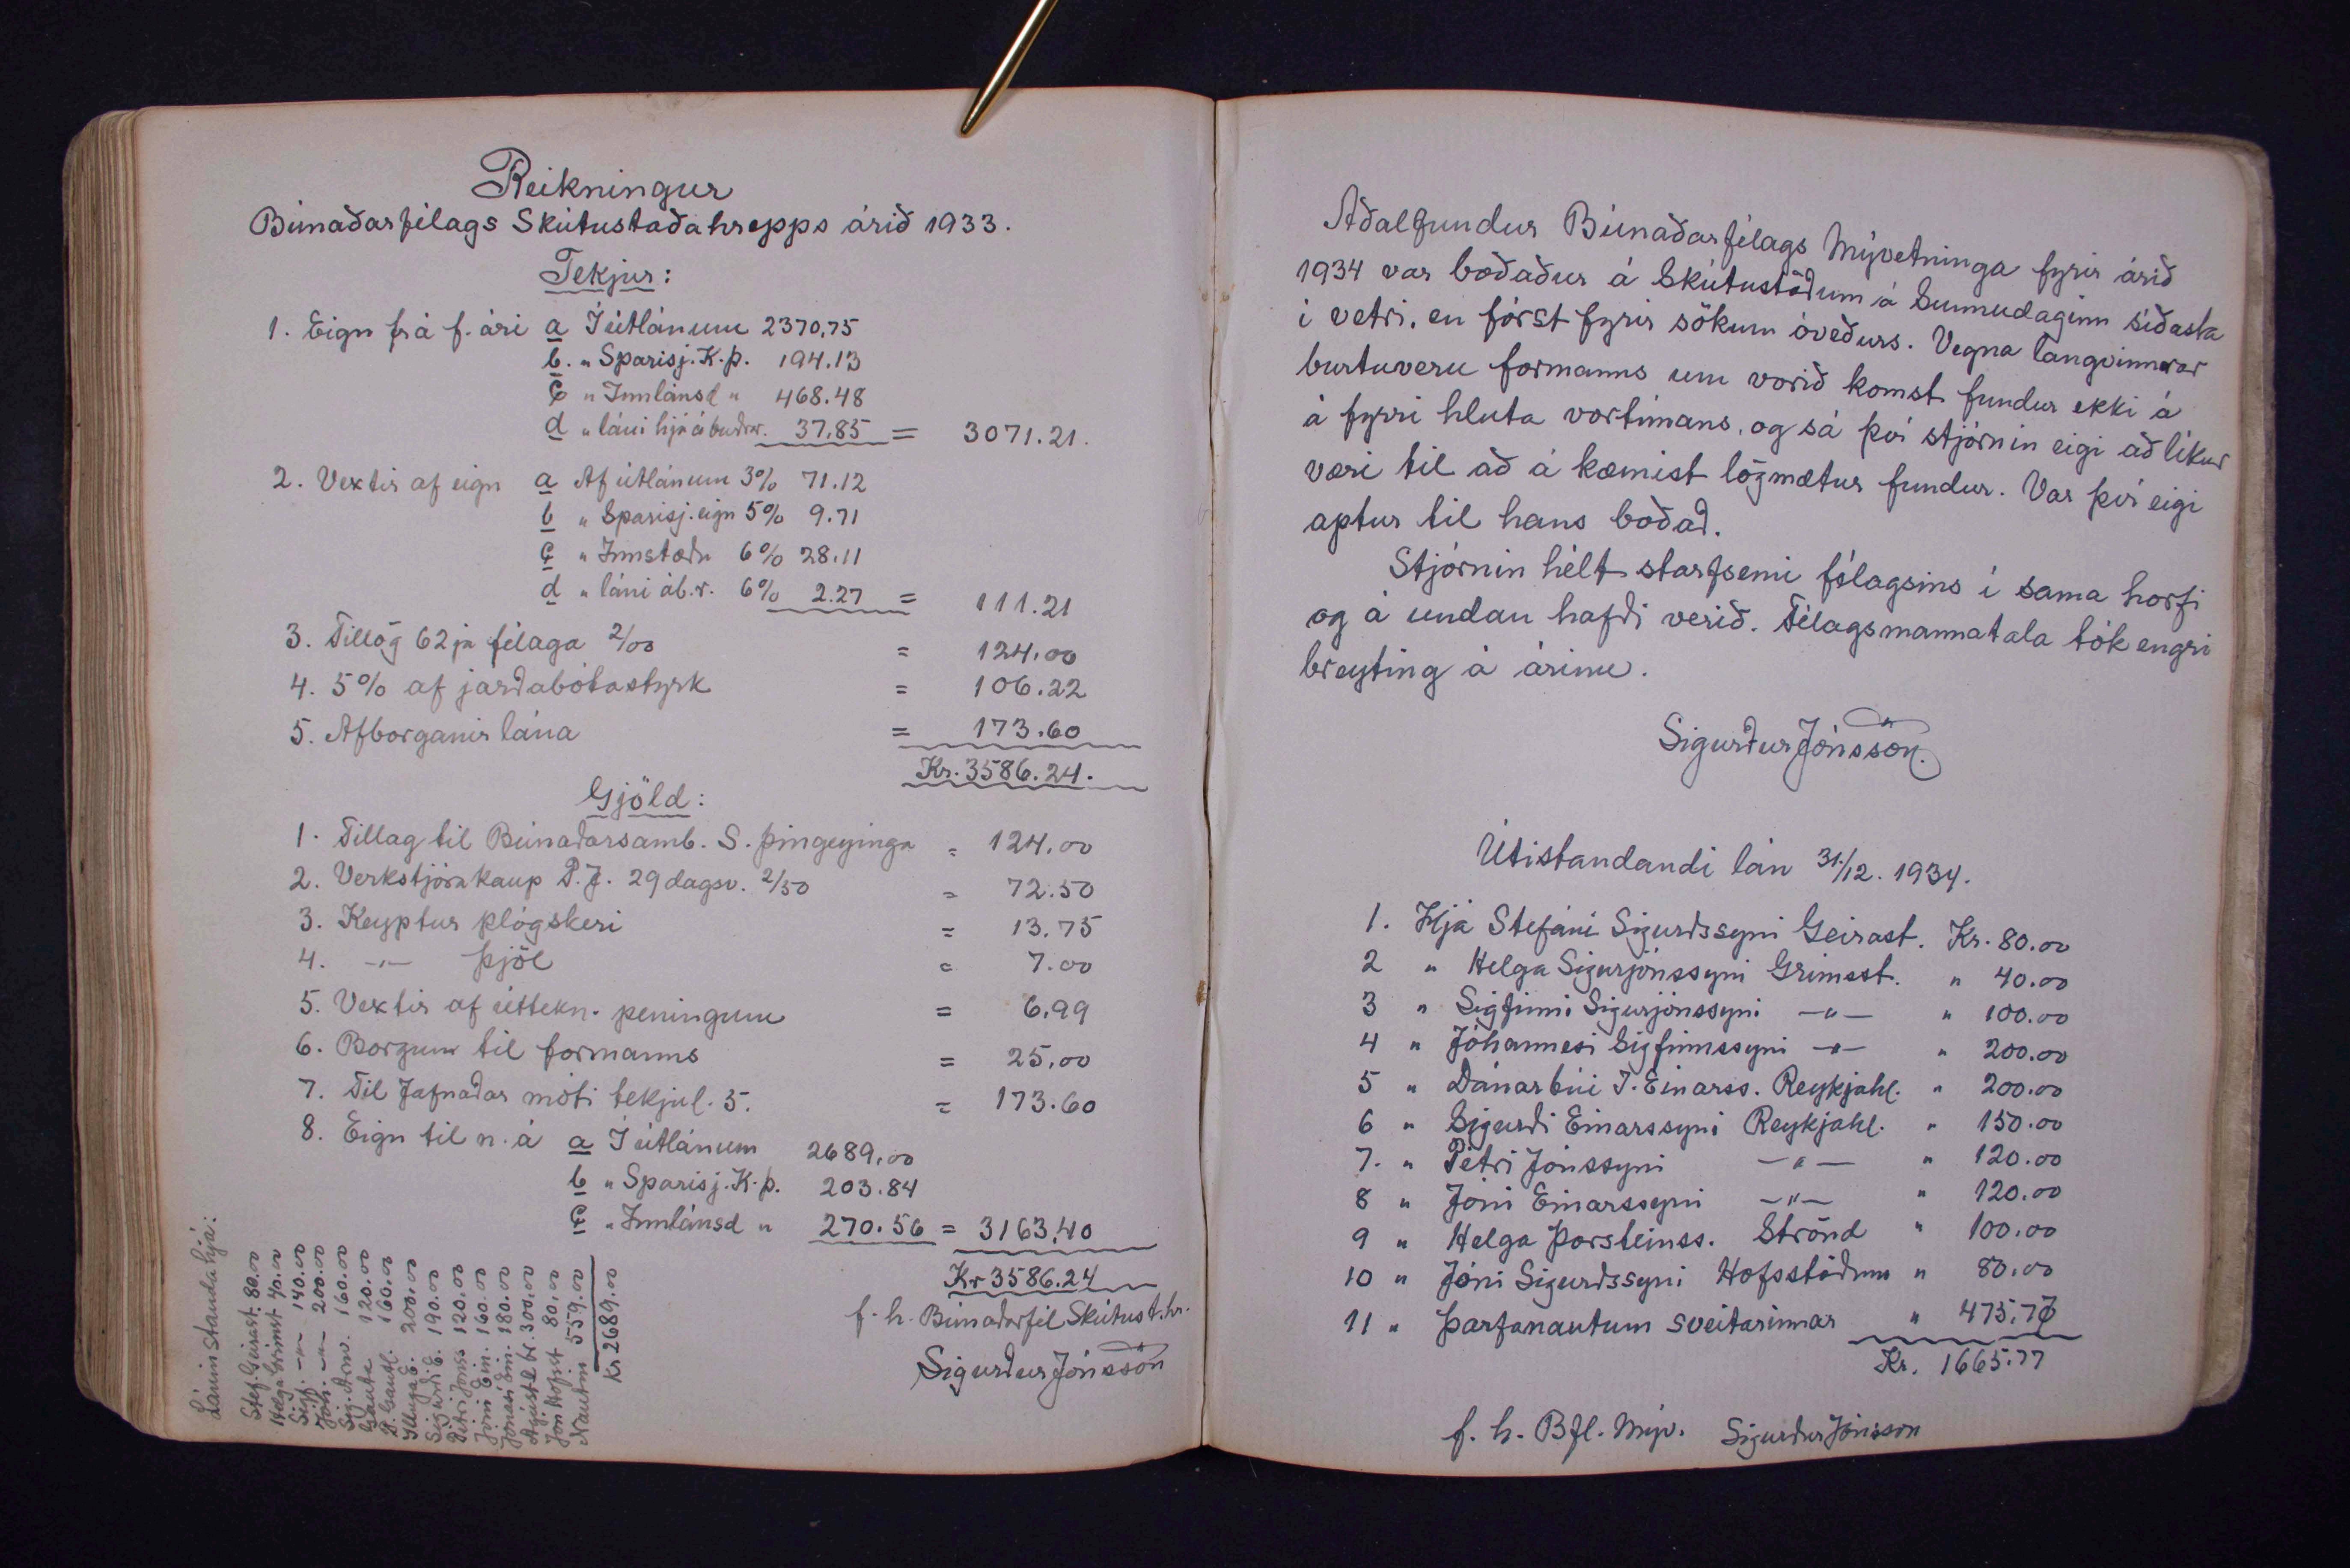 Reikningur
Búnaðarfélags Skútustaðahrepps árið 1933.
Tekjur:
1. Eign frá f. ári a Í útlánum 2370,75
b. " Sparisj. K.þ. 194.13
c " Innlánsd " 468.48
d " láni hjá ábúðar. 37.85 = 3071.21.
2. Vextir af eign a Af útlánum 3% 71.12
b " Sparisj. eign 5% 9.71
c " Innstæðu 6% 28.11
d " láni áb.r. 6% 2.27 = 111.21
3. Tillög 62ja félaga 2/00 = 124.00
4. 5% af jarðabótastyrk = 106.22
5. Afborganir lána = 173.60
Kr. 3586.24.
Gjöld:
1. Tillag til Búnaðarsamb. S. þingeyinga = 124.00
2. Verkstjórakaup P.J. 29 dagsv. 2/50 = 72.50
3. Keyptur plógskeri = 13.75
4. -"- þjöl = 7.00
5. Vextir af úttekn. peningum = 6.99
6. Borgun til formanns = 25.00
7. Til Jafnaðar móti tekjul. 5. = 173.60
8. Eign til n. á a Í útlánum 2689.00
b " Sparisj. K.þ. 203.84
c " Innlánsd " 270.56 = 3163.40
Kr 3586.24
f. h. Búnaðarfél Skútust.hr.
Sigurður Jónsson
Lánin standa hjá:
Stef. Geirast. 80.00
Helga Grímst 40.00
Sigf. -"- 140.00
Jóh. -"- 200.00
Sig. Arnv. 160.00
Gauta 120.00
P. Gautl. 160.00
Illuga E. 200.00
Sigurði E. 190.00
Pétri Jónss 120.00
Jóni Ein. 160.00
Jónasi Ein. 180.00
Ágúst br. 300.00
Jón Hofsst 80.00
Nautin 559.00
Kr 2689.00
Aðalfundur Búnaðarfélags Mývetninga fyrir árið
1934 var boðaður á Skútustöðum á Sunnudaginn síðasta
í vetri, en fórst fyrir sökum óveðurs. Vegna langvinnrar
burtuveru formanns um vorið komst fundur ekki á
á fyrri hluta vortímans, og sá því stjórnin eigi að líkur
væri til að á kæmist lögmætur fundur. Var því eigi
aptur til hans boðað.
Stjórnin hélt starfsemi félagsins í sama horfi
og á undan hafði verið. Félagsmannatala tók engri
breyting á árinu.
Sigurður Jónsson.
Útistandandi lán 31/12. 1934.
1. Hjá Stefáni Sigurðssyni Geirast. Kr. 80.00
2 " Helga Sigurjónssyni Grímsst. " 40.00
3 " Sigfinni Sigurjónssyni -"- " 100.00
4 " Jóhannesi Sigfinnssyni -"- " 200.00
5 " Dánarbúi I. Einarss. Reykjahl. " 200.00
6 " Sigurði Einarssyni Reykjahl. " 150.00
7. " Pétri Jónssyni -"- " 120.00
8 " Jóni Einarssyni -"- " 120.00
9 " Helga Þorsteinss. Strönd " 100.00
10 " Jóni Sigurðssyni Hofsstöðum " 80.00
11 " Þarfanautum sveitarinnar " 475.77
Kr. 1665.77
f. h. Bfl. Mýv. Sigurður Jónsson